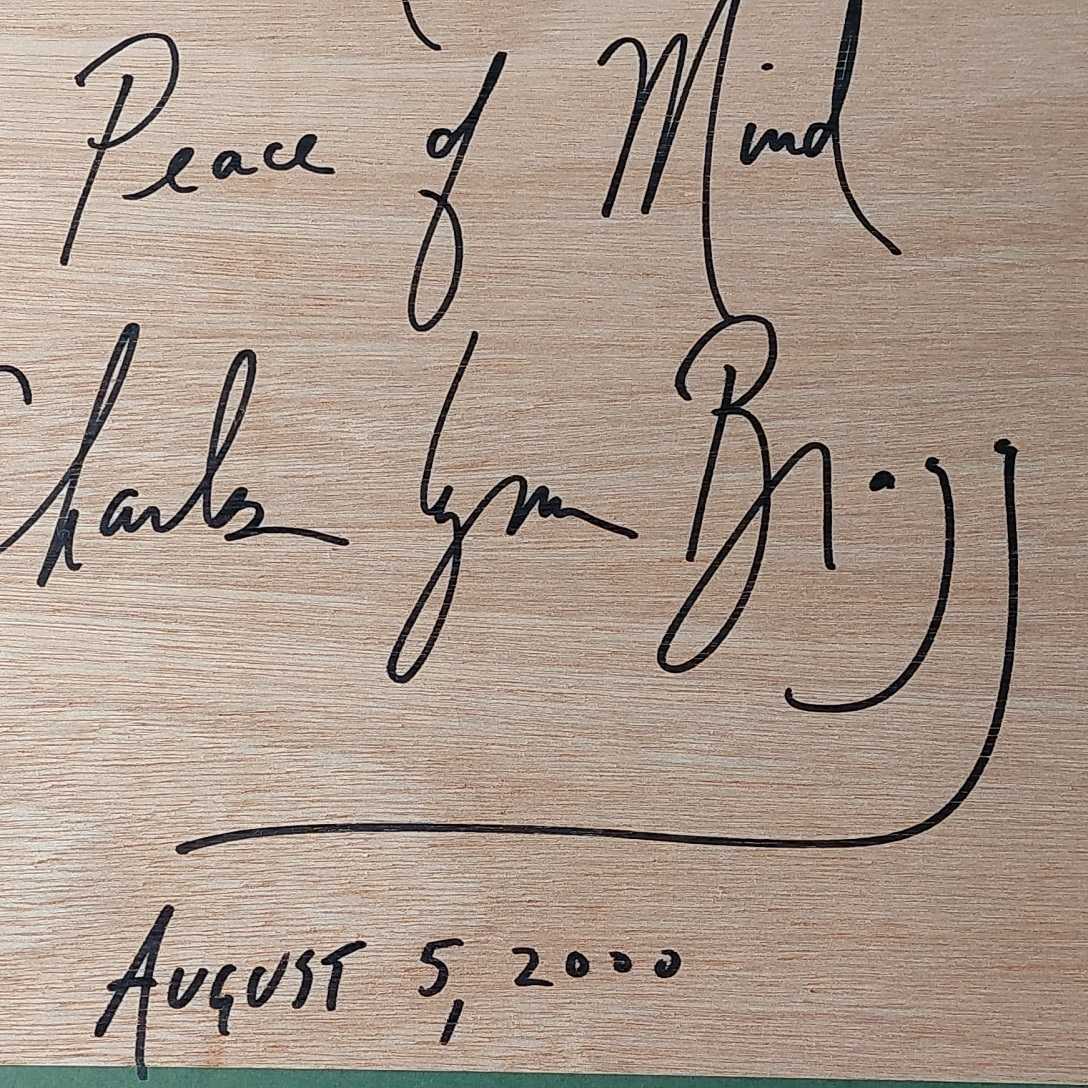 Peace of Mind
Charles Lynn Bragg
August 5, 2000